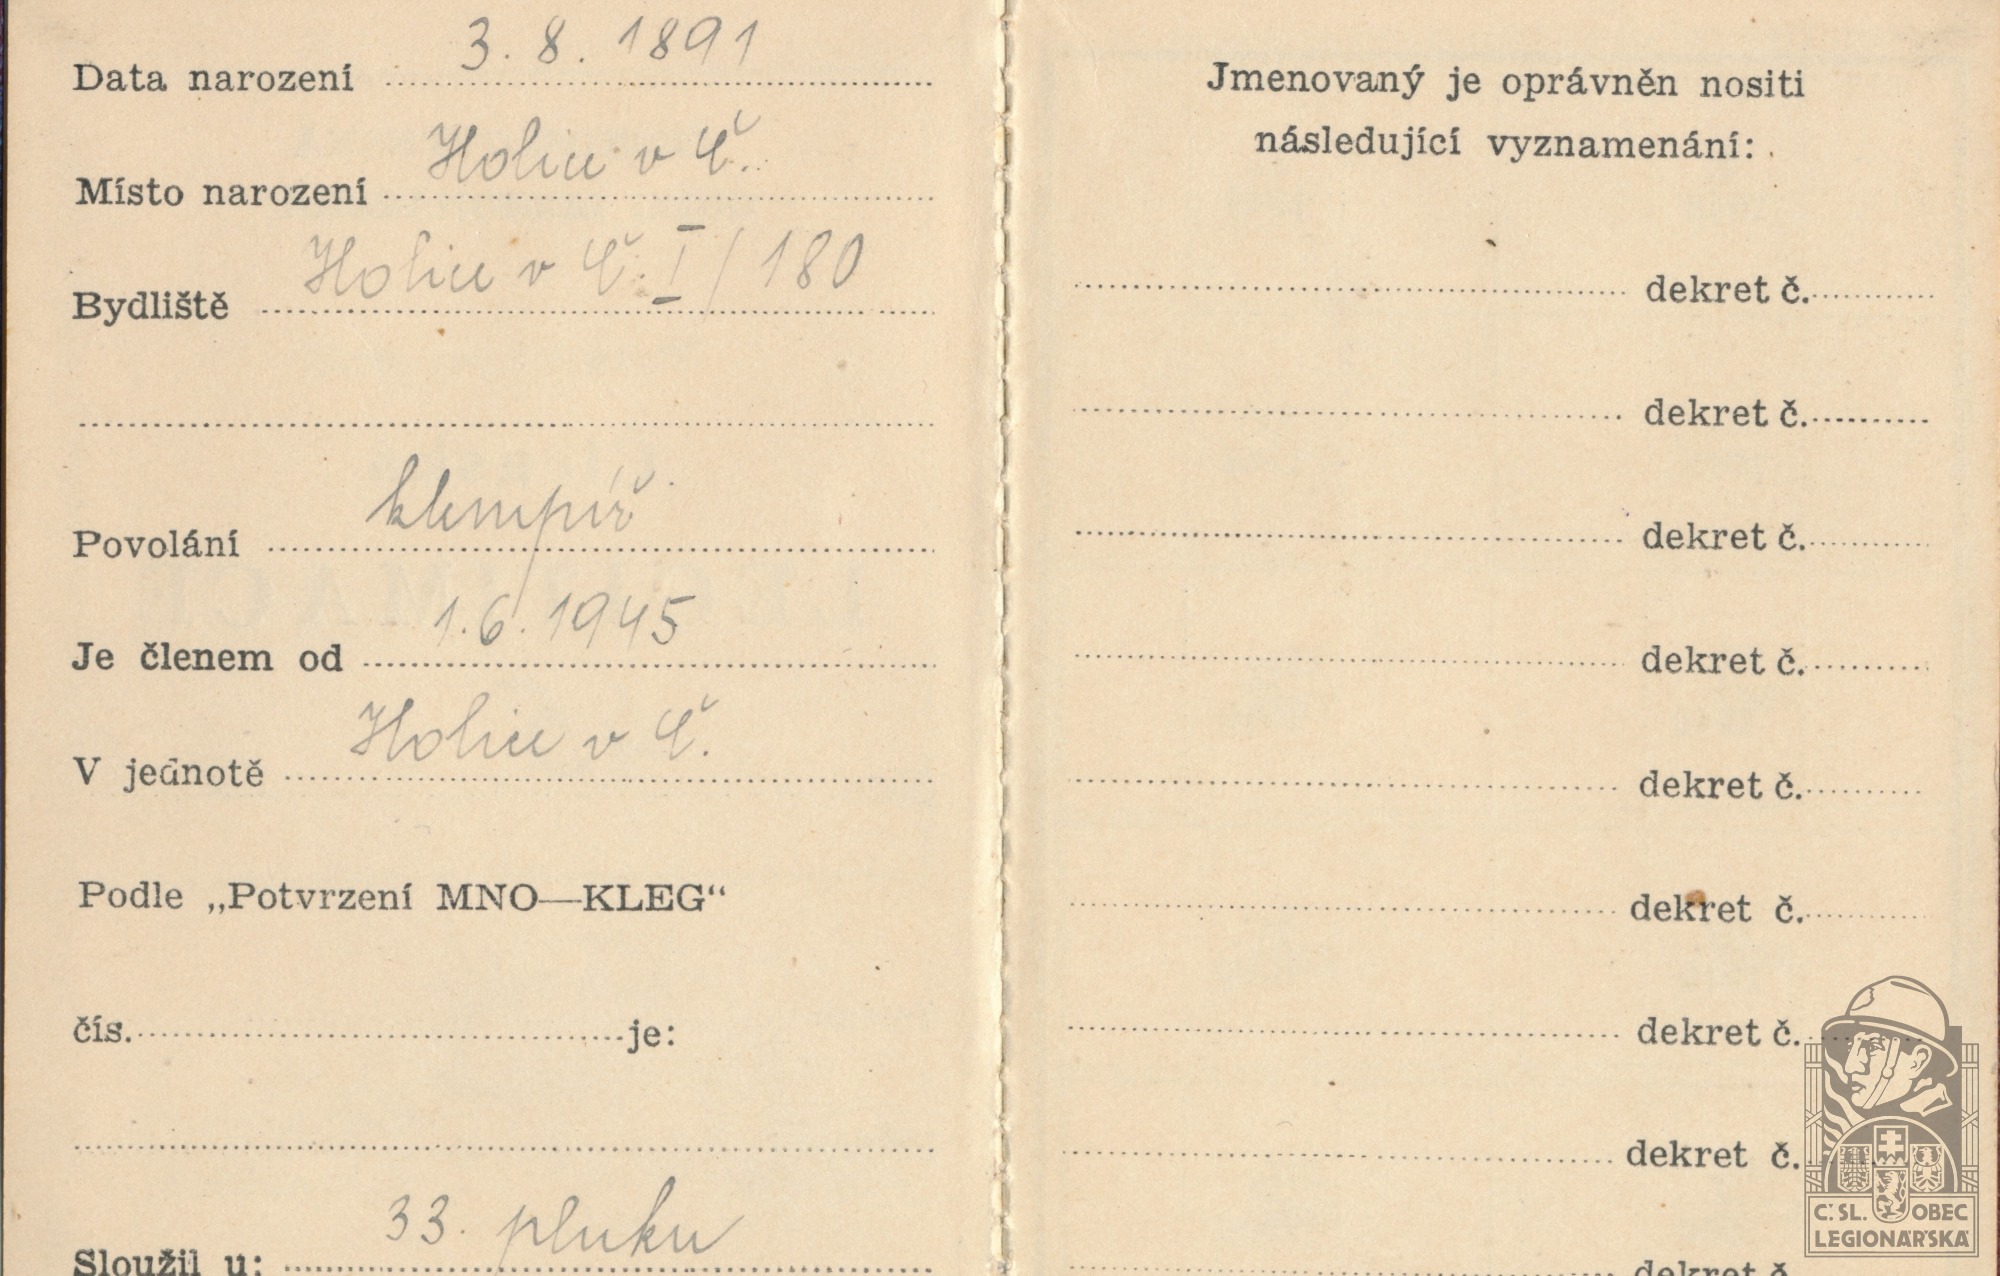 Data narození 3. 8. 1891
Místo narození Holice v Č.
Bydliště Holice v Č. I/180
Povolání klempíř
Je členem od 1.6.1945
V jednotě Holice v Č.
Podle „Potvrzení MNO—KLEG“
čís. je:
Sloužil u: 33. pluku
Jmenovaný je oprávněn nositi
následující vyznamenání:
dekret č.
dekret č.
dekret č.
dekret č.
dekret č.
dekret č.
dekret č.
dekret č.
dekret č.
Č. SL. OBEC
LEGIONÁŘSKÁ